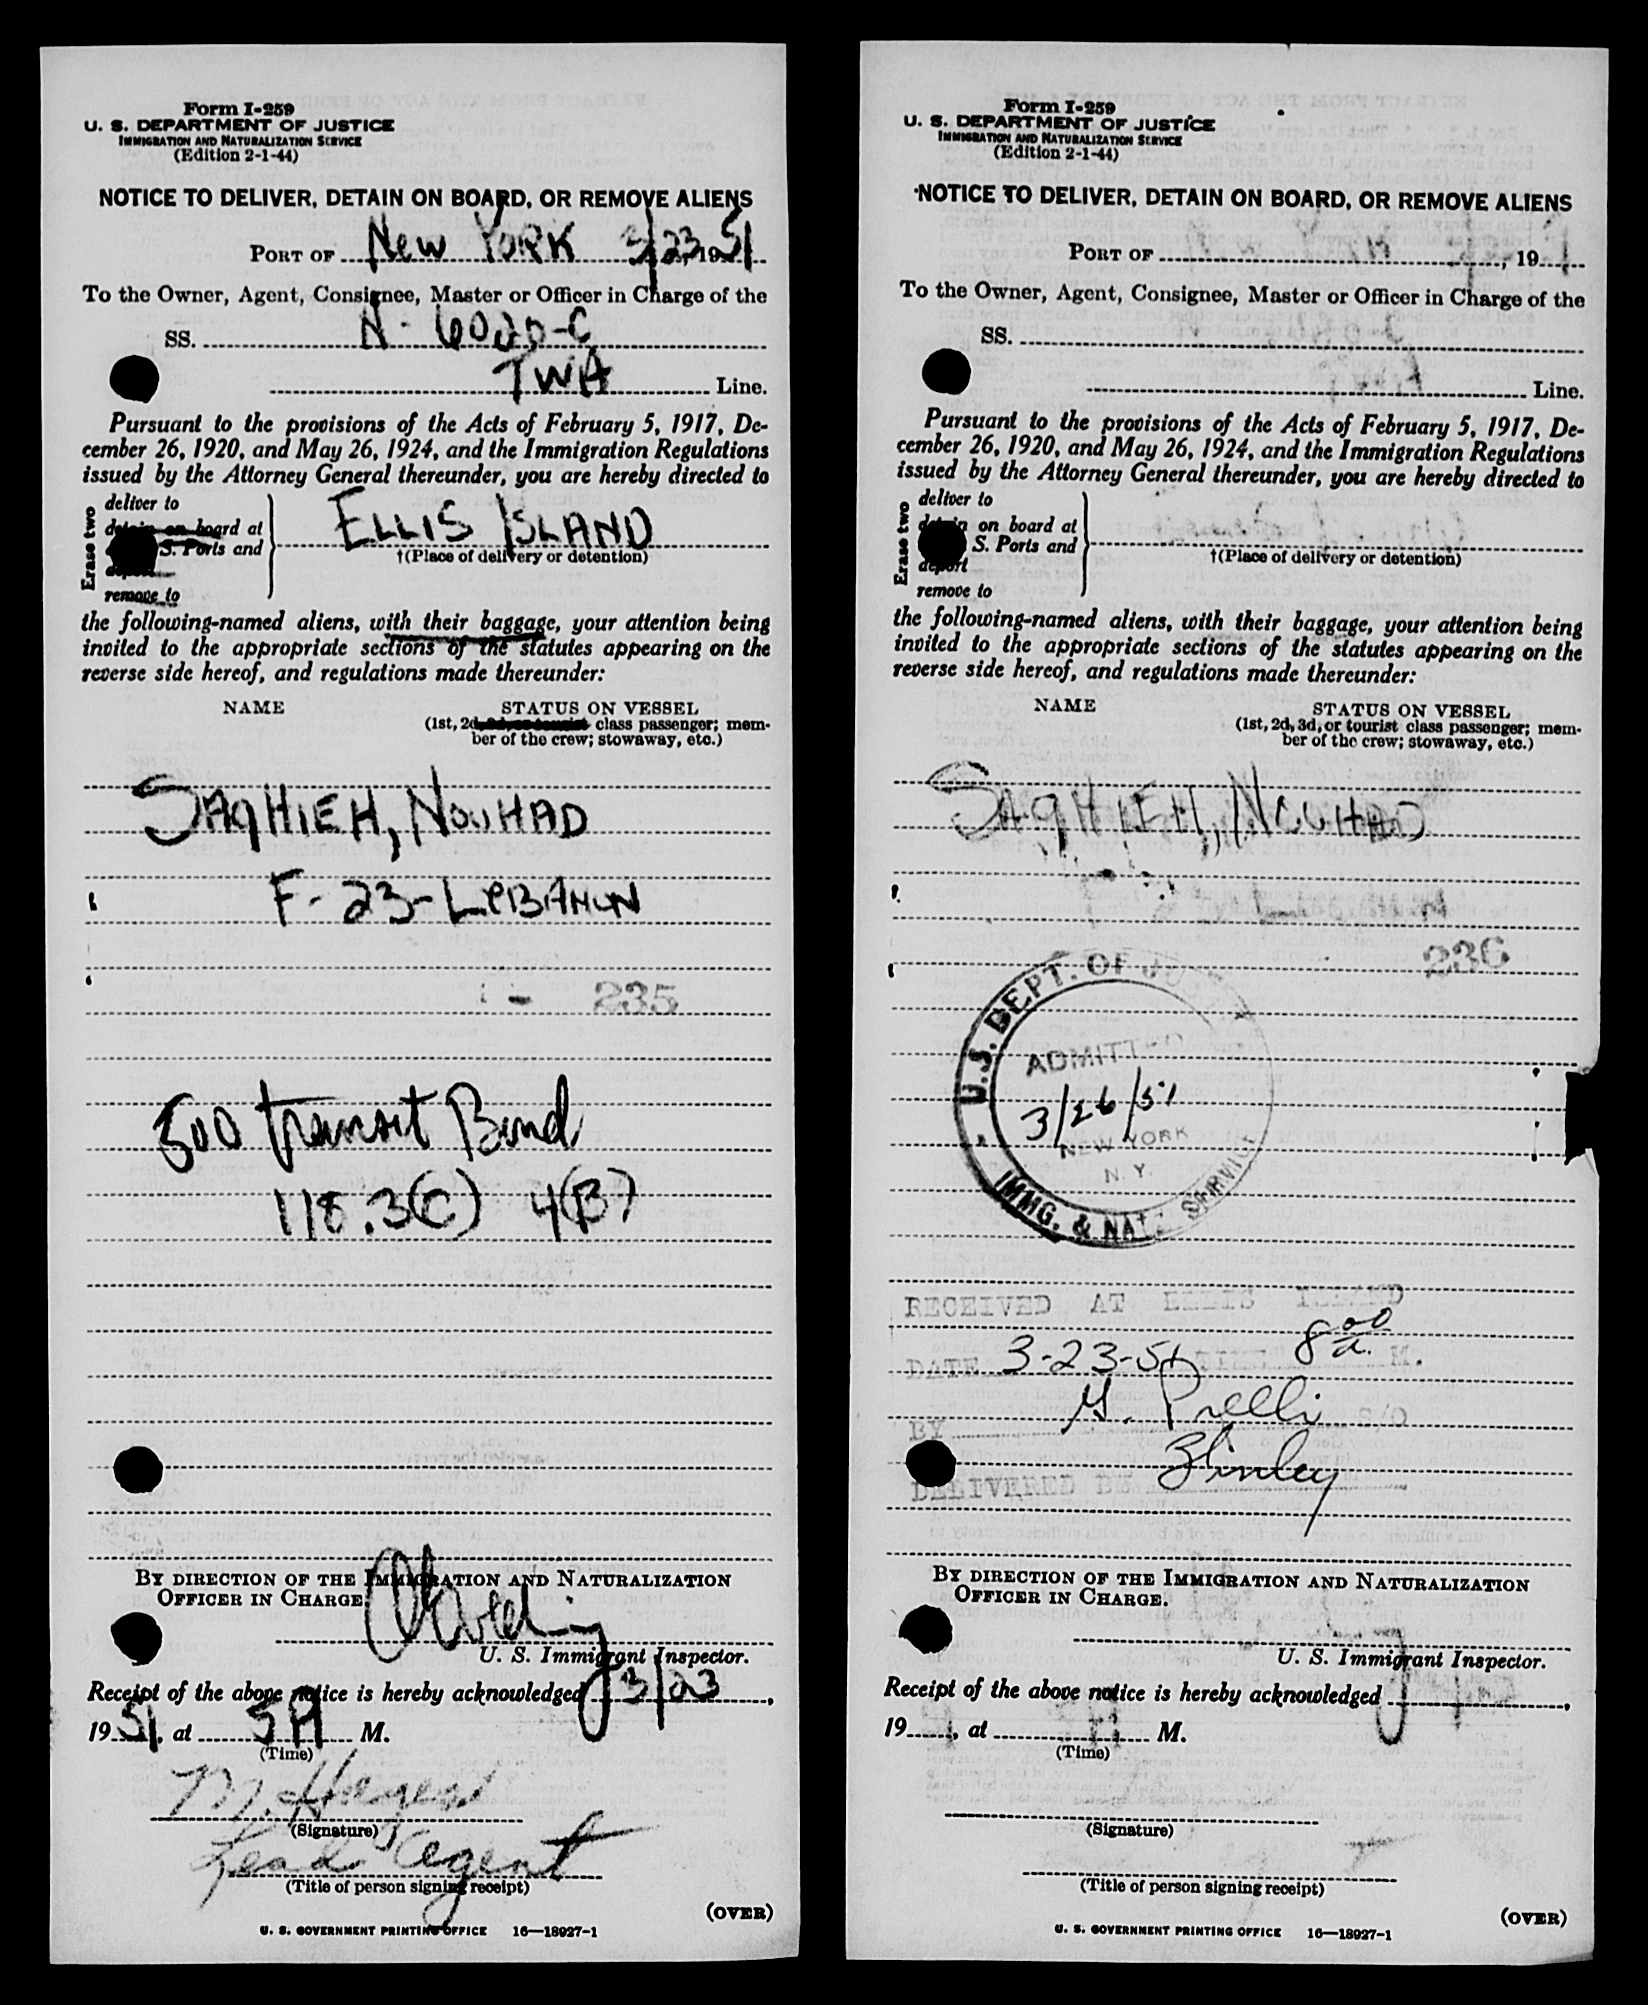 Form I-259
U. S. DEPARTMENT OF JUSTICE
IMMIGRATION AND NATURALIZATION SERVICE
(Edition 2-1-44)
NOTICE TO DELIVER, DETAIN ON BOARD, OR REMOVE ALIENS
PORT OF New YORK 3/23, 1951
To the Owner, Agent, Consignee, Master or Officer in Charge of the
SS. N-6020-C
TWA Line.
Pursuant to the provisions of the Acts of February 5, 1917, De-
cember 26, 1920, and May 26, 1924, and the Immigration Regulations
issued by the Attorney General thereunder, you are hereby directed to
Erase two
deliver to
detain on board at
S. Ports and
remove to
ELLIS ISLAND
†(Place of delivery or detention)
the following-named aliens, with their baggage, your attention being
invited to the appropriate sections of the statutes appearing on the
reverse side hereof, and regulations made thereunder:
NAME STATUS ON VESSEL
(1st, 2d, 3d, or tourist class passenger; mem-
ber of the crew; stowaway, etc.)
SAGHIEH, NOUHAD
F-23-LEBANON
235
500 transit Bond
118.3(C) 4(B)
BY DIRECTION OF THE IMMIGRATION AND NATURALIZATION
OFFICER IN CHARGE.
U. S. Immigrant Inspector.
Receipt of the above notice is hereby acknowledged 3/23,
1951, at 5 A M.
(Time)
M. Hayes
(Signature)
Lead Agent
(Title of person signing receipt)
(OVER)
U. S. GOVERNMENT PRINTING OFFICE 16—18927-1
Form I-259
U. S. DEPARTMENT OF JUSTICE
IMMIGRATION AND NATURALIZATION SERVICE
(Edition 2-1-44)
NOTICE TO DELIVER, DETAIN ON BOARD, OR REMOVE ALIENS
PORT OF , 19
To the Owner, Agent, Consignee, Master or Officer in Charge of the
SS.
Line.
Pursuant to the provisions of the Acts of February 5, 1917, De-
cember 26, 1920, and May 26, 1924, and the Immigration Regulations
issued by the Attorney General thereunder, you are hereby directed to
Erase two
deliver to
detain on board at
S. Ports and
deport
remove to
†(Place of delivery or detention)
the following-named aliens, with their baggage, your attention being
invited to the appropriate sections of the statutes appearing on the
reverse side hereof, and regulations made thereunder:
NAME STATUS ON VESSEL
(1st, 2d, 3d, or tourist class passenger; mem-
ber of the crew; stowaway, etc.)
SAGHIEH, NOUHAD
236
U.S. DEPT. OF
ADMITTED
3/26/51
NEW YORK
N. Y.
IMMG. & NATZ. SERVICE
RECEIVED AT ELLIS ISLAND
DATE 3-23-51 TIME 8 00 a. M.
BY
DELIVERED BY
BY DIRECTION OF THE IMMIGRATION AND NATURALIZATION
OFFICER IN CHARGE.
U. S. Immigrant Inspector.
Receipt of the above notice is hereby acknowledged ,
19 , at M.
(Time)
(Signature)
(Title of person signing receipt)
(OVER)
U. S. GOVERNMENT PRINTING OFFICE 16—18927-1